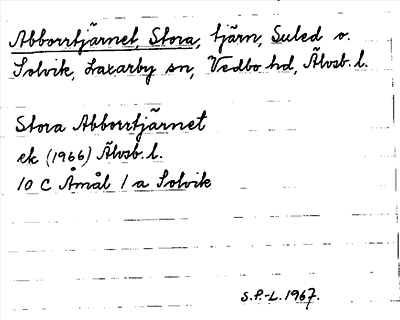 Abborrtjärnet, Stora, tjärn, Suled o.
Solvik, Laxarby sn, Vedbo hd, Älvsb. l.
Stora Abborrtjärnet
ek (1966) Älvsb. l.
10 C Åmål 1 a Solvik
S.P.-L. 1967.